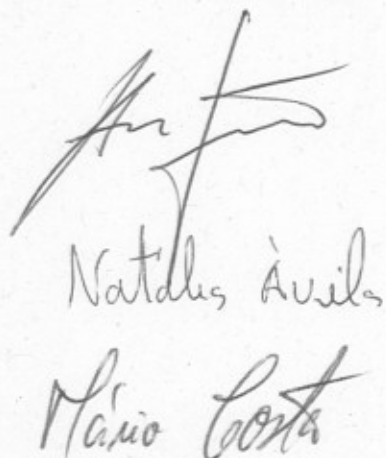 Natália Àvila
Mário Costa